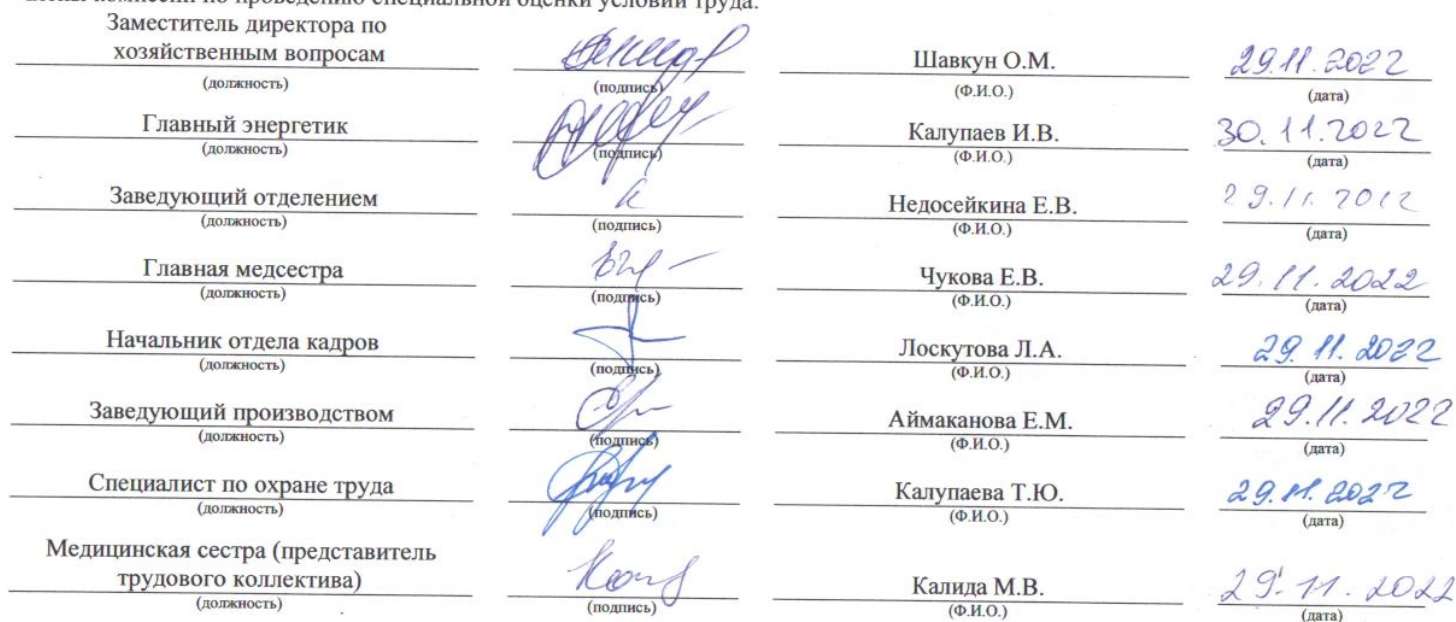 комиссии по проведению специальной оценки условий труда:
Заместитель директора по
хозяйственным вопросам Шавкун О.М. 29.11.2022
(должность) (подпись) (Ф.И.О.) (дата)
Главный энергетик Калупаев И.В. 30.11.2022
(должность) (подпись) (Ф.И.О.) (дата)
Заведующий отделением Недосейкина Е.В. 29.11.2022
(должность) (подпись) (Ф.И.О.) (дата)
Главная медсестра Чукова Е.В. 29.11.2022
(должность) (подпись) (Ф.И.О.) (дата)
Начальник отдела кадров Лоскутова Л.А. 29.11.2022
(должность) (подпись) (Ф.И.О.) (дата)
Заведующий производством Аймаканова Е.М. 29.11.2022
(должность) (подпись) (Ф.И.О.) (дата)
Специалист по охране труда Калупаева Т.Ю. 29.11.2022
(должность) (подпись) (Ф.И.О.) (дата)
Медицинская сестра (представитель
трудового коллектива) Калида М.В. 29.11.2022
(должность) (подпись) (Ф.И.О.) (дата)